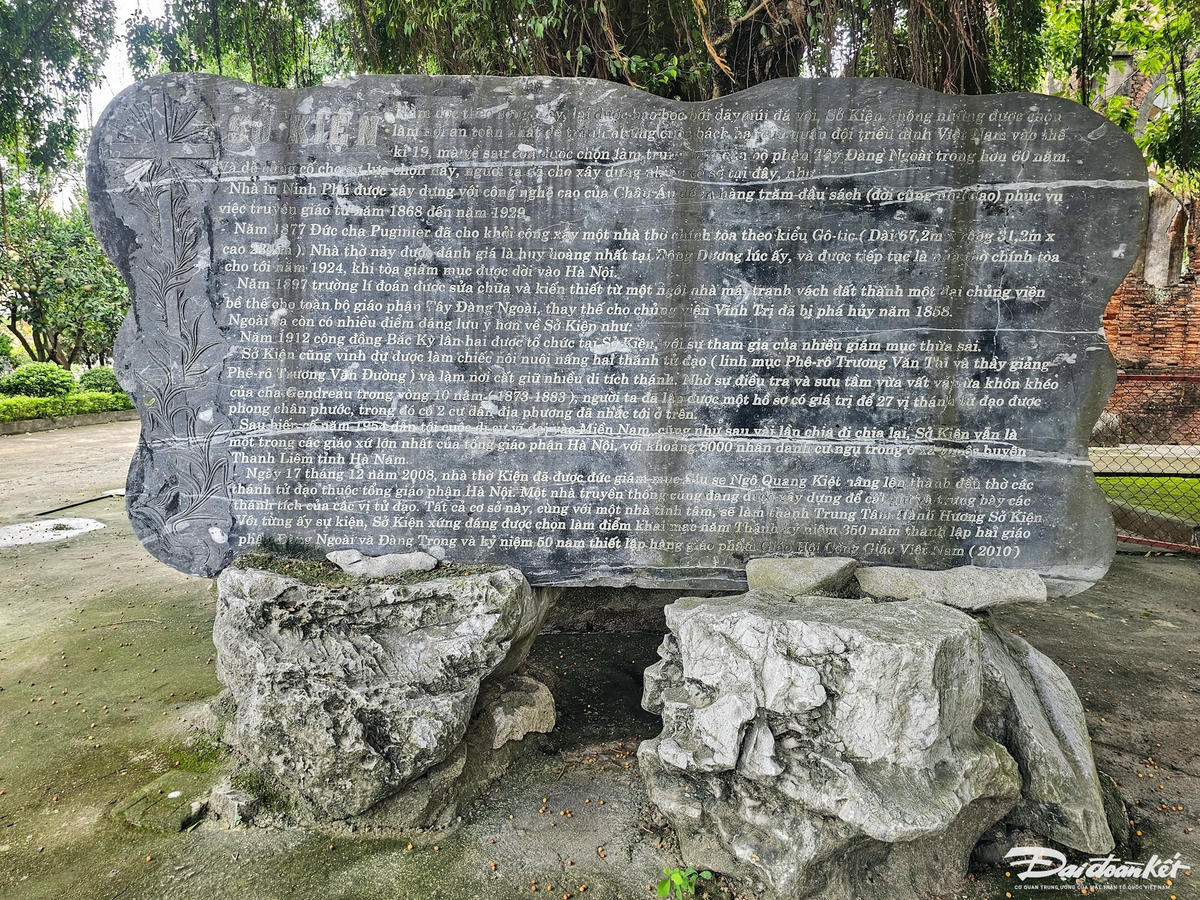 SỞ KIỆN
Nằm dọc theo sông Đáy, lại được bao bọc bởi dãy núi đá vôi, Sở Kiện không những được chọn
làm nơi an toàn nhất để tránh những cuộc bách hại của quân đội triều đình Việt Nam vào thế
kỉ 19, mà về sau còn được chọn làm trung tâm của bộ phận Tây Đàng Ngoài trong hơn 60 năm.
Và để củng cố cho sự lựa chọn này, người ta đã cho xây dựng nhiều cơ sở tại đây, như
Nhà in Ninh Phú được xây dựng với công nghệ cao của Châu Âu đã in hàng trăm đầu sách (đời cũng như đạo) phục vụ
việc truyền giáo từ năm 1868 đến năm 1929.
Năm 1877 Đức cha Puginier đã cho khởi công xây một nhà thờ chính tòa theo kiểu Gô-tic ( Dài 67,2m x rộng 31,2m x
cao ). Nhà thờ này được đánh giá là huy hoàng nhất tại Đông Dương lúc ấy, và được tiếp tục là nhà thờ chính tòa
cho tới năm 1924, khi tòa giám mục được dời vào Hà Nội.
Năm 1897 trường lí đoán được sửa chữa và kiến thiết từ một ngôi nhà mấy tranh vách đất thành một đại chủng viện
bề thế cho toàn bộ giáo phận Tây Đàng Ngoài, thay thế cho chủng viện Vĩnh Trị đã bị phá hủy năm 1858.
Ngoài ra còn có nhiều điểm đáng lưu ý hơn về Sở Kiện như:
Năm 1912 công đồng Bắc Kỳ lần hai được tổ chức tại Sở Kiện, với sự tham gia của nhiều giám mục thừa sai.
Sở Kiện cũng vinh dự được làm chiếc nôi nuôi nấng hai thánh tử đạo ( linh mục Phê-rô Trương Văn Thi và thầy giảng
Phê-rô Trương Văn Đường ) và làm nơi cất giữ nhiều di tích thánh. Nhờ sự điều tra và sưu tầm vừa vất vả vừa khôn khéo
của cha Gendreau trong vòng 10 năm ( 1873-1883 ), người ta đã lập được một hồ sơ có giá trị để 27 vị thánh tử đạo được
phong chân phước, trong đó có 2 cư dân địa phương đã nhắc tới ở trên.
Sau biến cố năm 1954 dẫn tới cuộc di cư vĩ đại vào Miền Nam, cũng như sau vài lần chia đi chia lại, Sở Kiện vẫn là
một trong các giáo xứ lớn nhất của tổng giáo phận Hà Nội, với khoảng 8000 nhân danh cư ngụ trong xã thuộc huyện
Thanh Liêm tỉnh Hà Nam.
Ngày 17 tháng 12 năm 2008, nhà thờ Kiện đã được đức giám mục Giu se Ngô Quang Kiệt nâng lên thành đền thờ các
thánh tử đạo thuộc tổng giáo phận Hà Nội. Một nhà truyền thống cũng đang được xây dựng để cất giữ và trưng bày các
thánh tích của các vị tử đạo. Tất cả cơ sở này, cùng với một nhà tĩnh tâm, sẽ làm thành Trung Tâm Hành Hương Sở Kiện.
Với từng ấy sự kiện, Sở Kiện xứng đáng được chọn làm điểm khai mạc năm Thánh kỷ niệm 350 năm thành lập hai giáo
phận Đàng Ngoài và Đàng Trong và kỷ niệm 50 năm thiết lập hàng giáo phẩm Giáo Hội Công Giáo Việt Nam ( 2010 )
Đại đoàn kết
CƠ QUAN TRUNG ƯƠNG CỦA MẶT TRẬN TỔ QUỐC VIỆT NAM